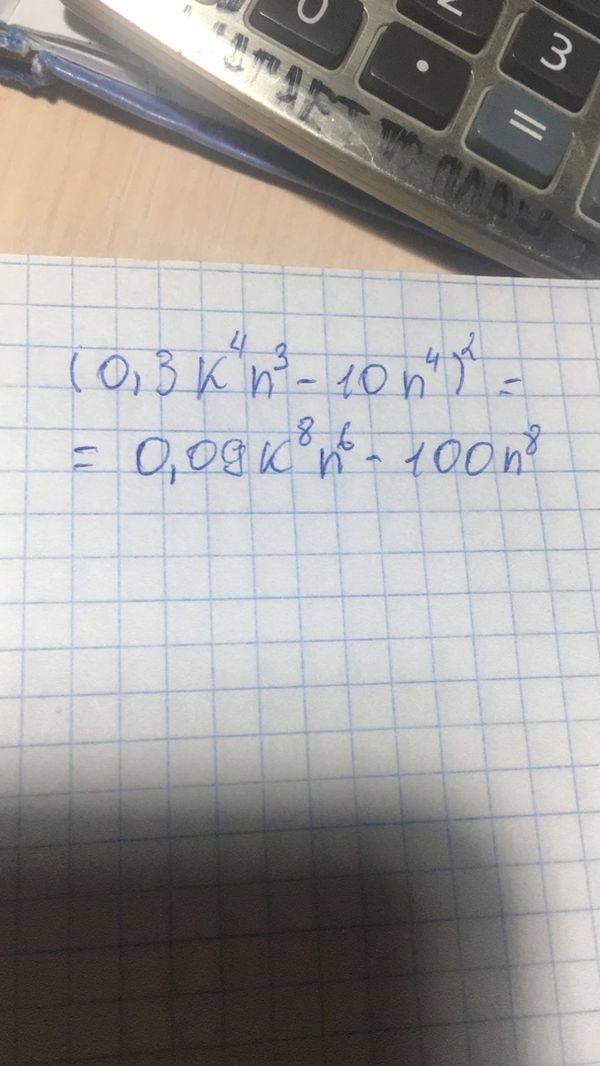 0 2
. 3
=
(0,3k⁴n³ - 10n⁴)² =
= 0,09k⁸n⁶ - 100n⁸